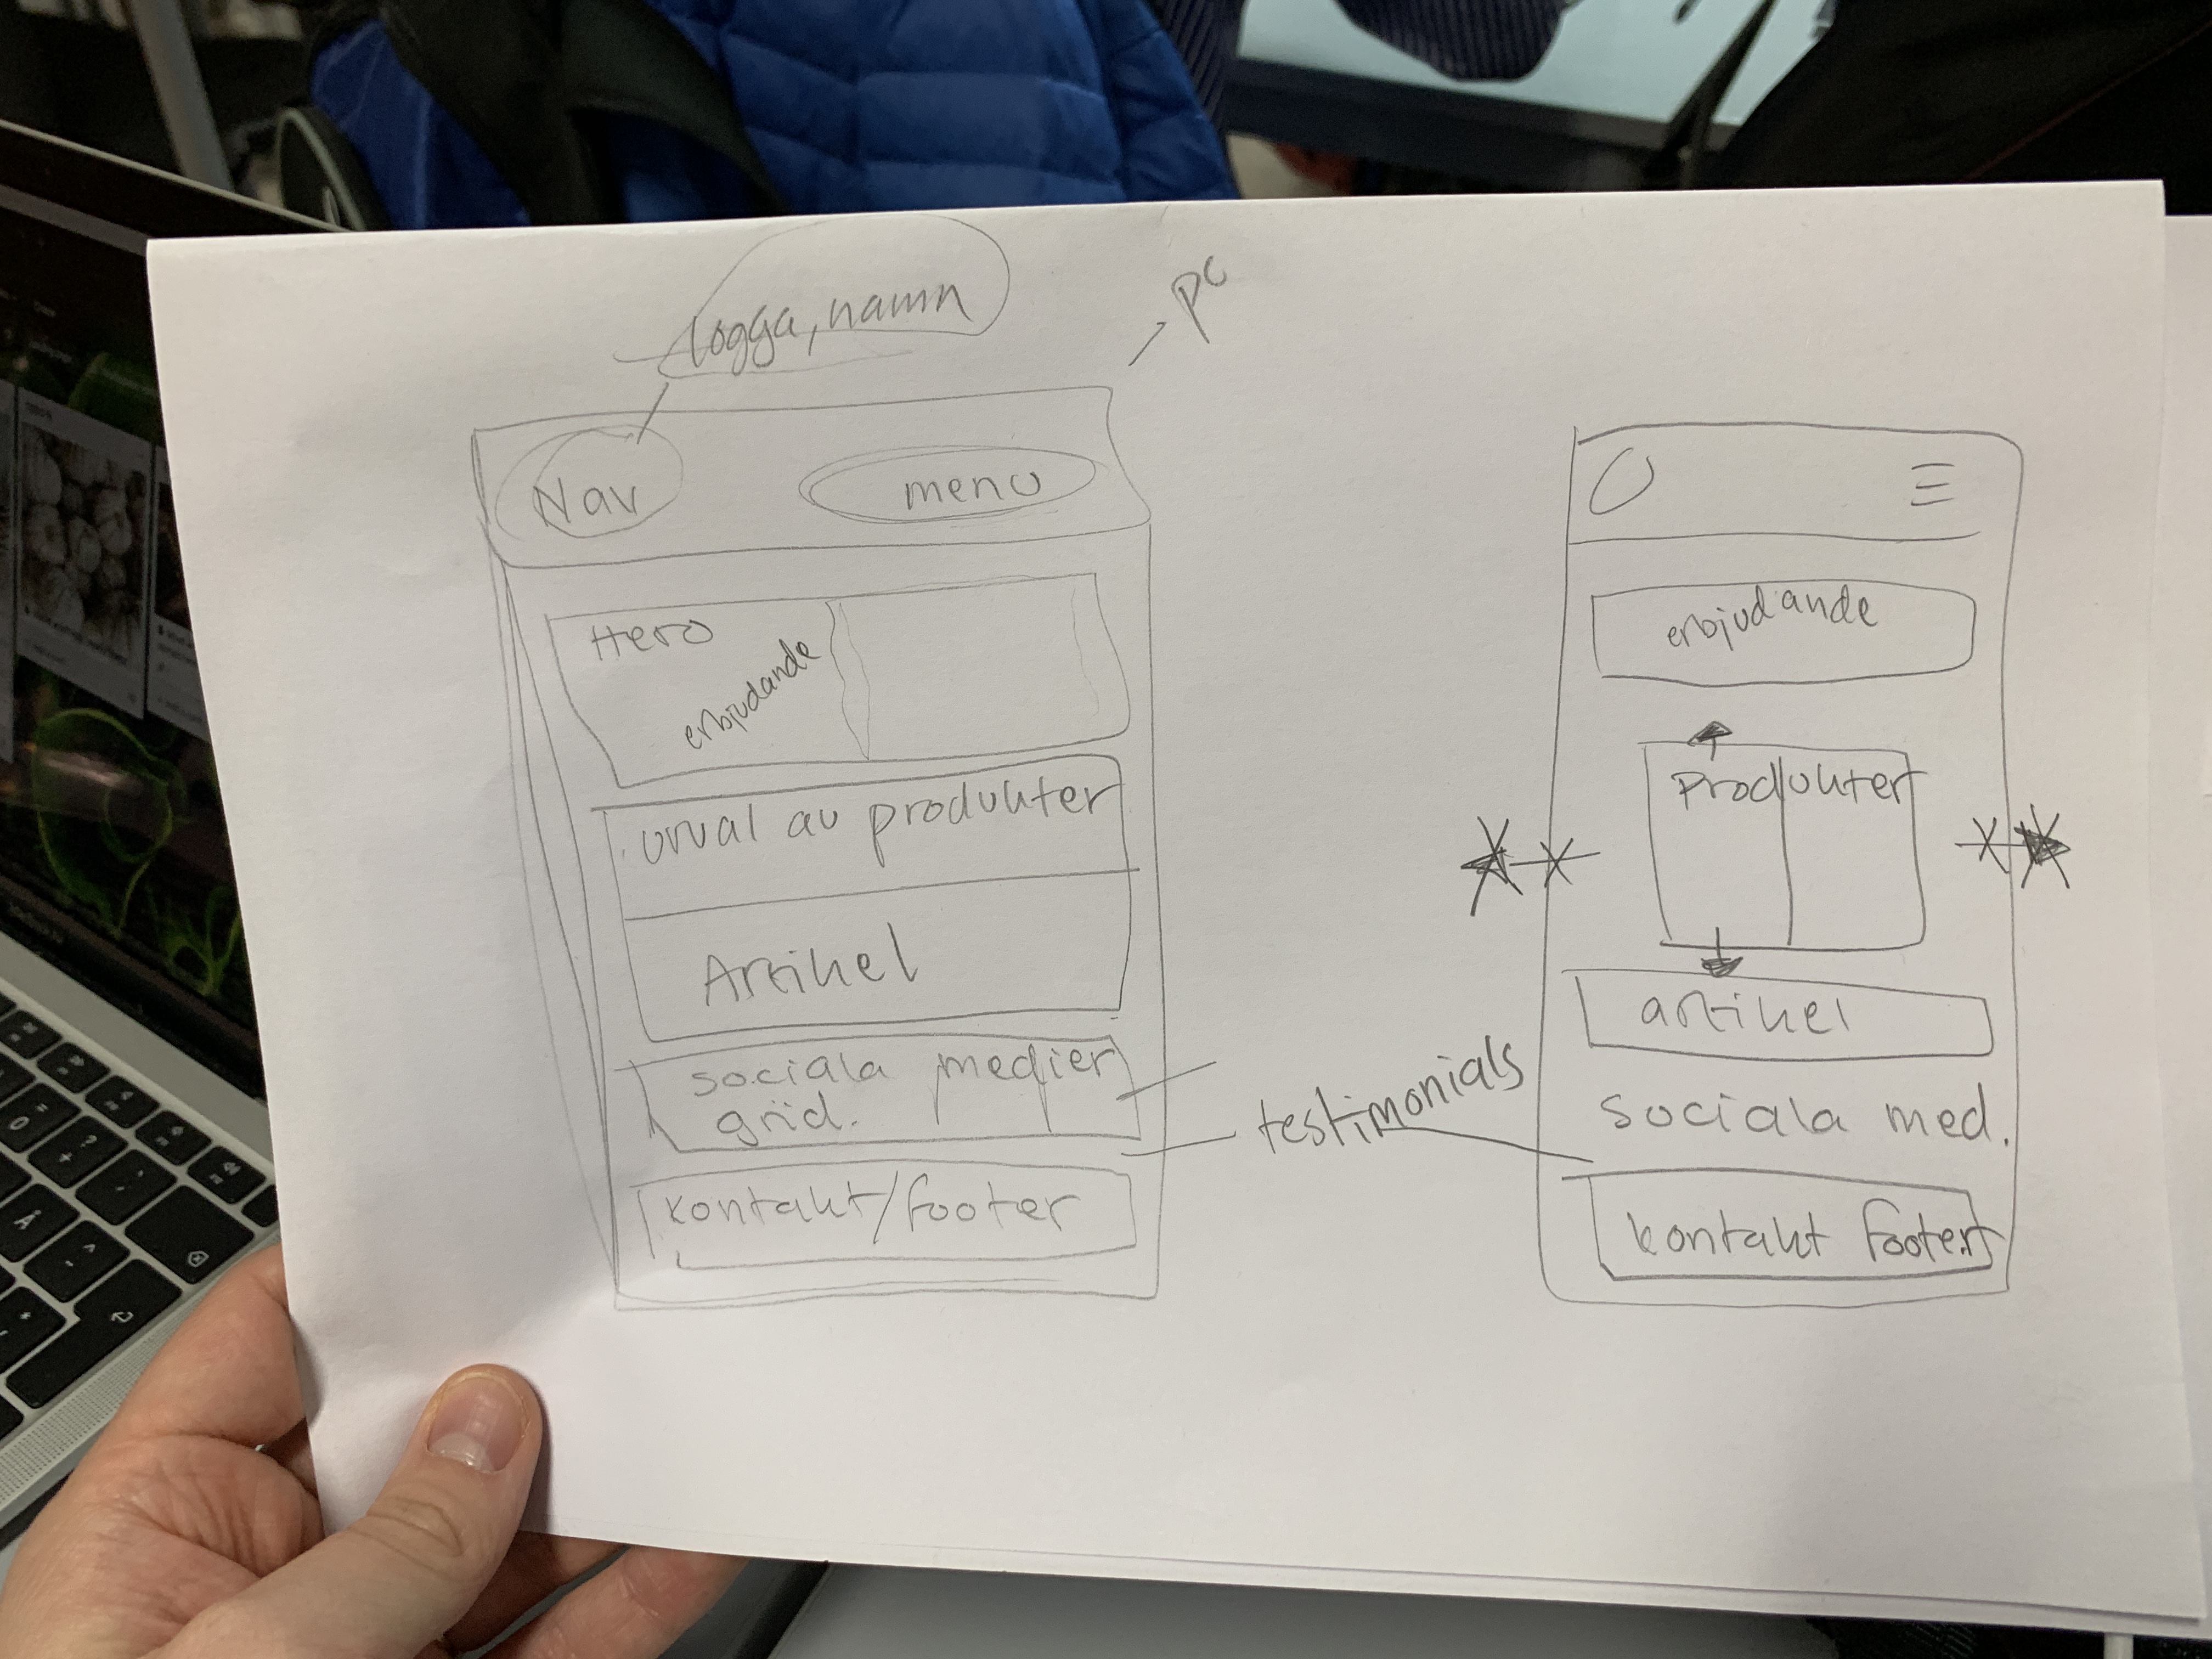 logga, namn
pc
Nav
menu
Hero
erbjudande
urval av produkter
Artikel
sociala medier
grid.
testimonials
kontakt/footer
erbjudande
Produkter
artikel
sociala med.
kontakt footer